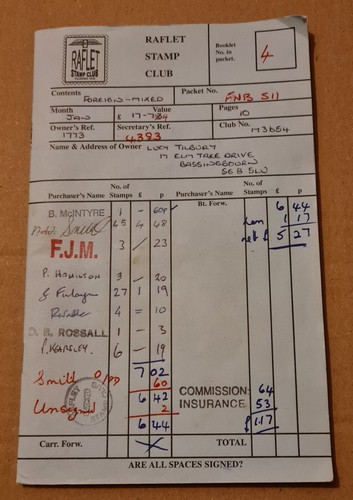 RAFLET
STAMP
CLUB
RAFLET
STAMP CLUB
Booklet
No. in
packet.
4
Contents
FOREIGN - MIXED
Packet No.
FNB S11
Month
JAN
Value
£ 17-784
Pages
10
Owner's Ref.
1773
Secretary's Ref.
4383
Club No.
M3654
Name & Address of Owner LUCY TILBURY
17 ELM TREE DRIVE,
BASSINGBOURN
SG8 5LW
Purchaser's Name No. of Stamps £ p Purchaser's Name No. of Stamps £ p
B. McINTYRE 1 - 60p
Bt. Forw. 6 44
Smith 45 4 48
1 17
net £ 5 27
F.J.M. 3 / 23
P. HAMILTON 3 - 20
27 1 19
4 = 10
D. B. ROSSALL 1 - 3
P. KEARSLEY 6 - 19
7 02
Smith O/PD 60
6 42
Unsigned 2
6 44
COMMISSION 64
INSURANCE 53
£ 1.17
Carr. Forw.
TOTAL
ARE ALL SPACES SIGNED?